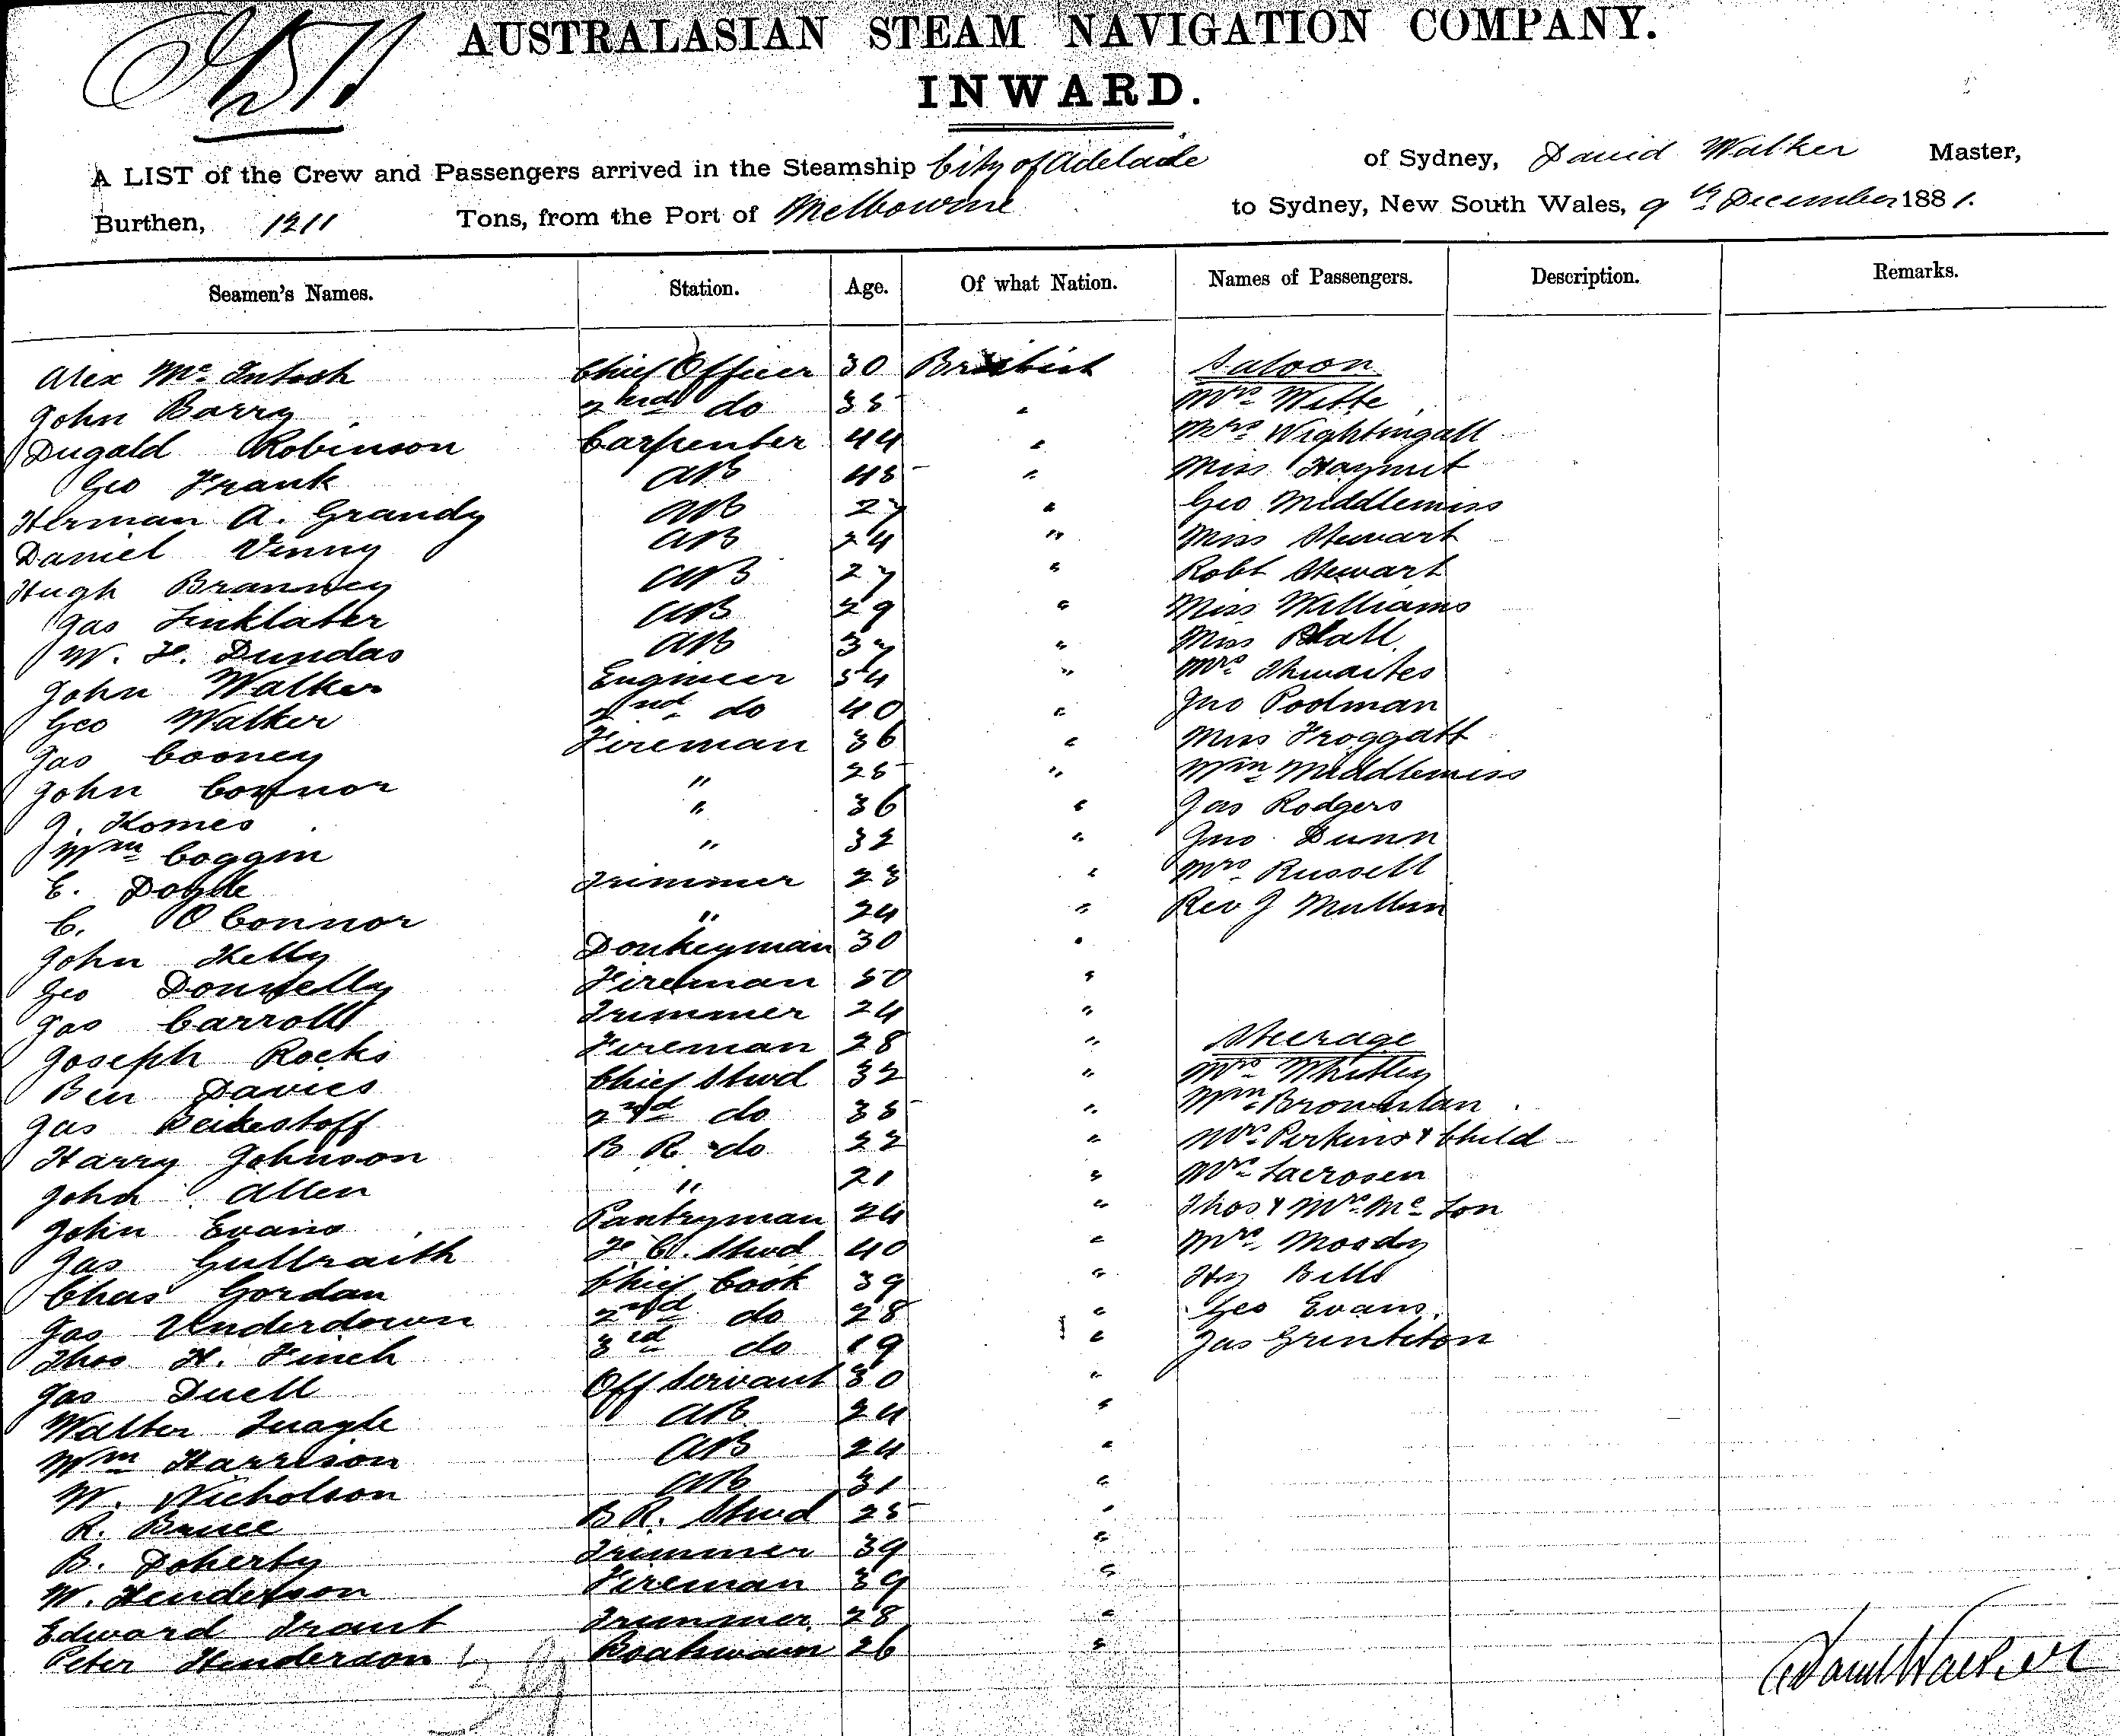 AUSTRALASIAN STEAM NAVIGATION COMPANY.
INWARD.
A LIST of the Crew and Passengers arrived in the Steamship City of Adelaide of Sydney, David Walker Master,
Burthen, 1211 Tons, from the Port of Melbourne to Sydney, New South Wales, 9th December 1881.
Seamen's Names. Station. Age. Of what Nation. Names of Passengers. Description. Remarks.
Alex McIntosh Chief Officer 30 British Saloon
John Barry 2nd do 35 " Mrs Witte
Dugald Robinson Carpenter 44 " Mrs Wightingall
Geo Frank AB 45 " Miss
Herman A. Grandy AB 27 " Geo Middlemiss
Daniel Vinny AB 24 " Miss Stewart
Hugh Branney AB 27 " Robt Stewart
Jas Linklater AB 29 " Miss Williams
W. F. Dundas AB 37 " Miss
John Walker Engineer 54 " Mrs Thwaites
Geo Walker 2nd do 40 " Jno Podman
Jas Cooney Fireman 36 " Miss Froggatt
John Connor " 25 " Wm Middlemiss
J. Homes " 36 " Jas Rodgers
Wm Coggin " 32 " Jno Dunn
E. Doyle Trimmer 23 " Mrs Russell
C. O'Connor " 24 " Rev J Mullin
John Kelly Donkeyman 30 "
Geo Donnelly Fireman 50 "
Jas Carroll Trimmer 24 "
Joseph Rocks Fireman 28 " Steerage
Ben Davies Chief Stwd 32 " Mrs Whitley
Jas 2nd do 35 " Wm
Harry Johnson B R do 22 " Mrs Perkins & Child
John Allen " 21 " Mrs
John Evans Pantryman 24 " Thos & Mrs
Jas F. C. Stwd 40 " Mrs Moody
Chas Gordan Chief Cook 39 " Hy Bills
Jas Underdown 2nd do 28 " Geo Evans
Thos H. Finch 3rd do 19 " Jas
Jas Duell Off Servant 30 "
Walter Quayle AB 24 "
Wm Harrison AB 24 "
W. Nicholson AB 31 "
R. Bruce B R. Stwd 25 "
B. Doherty Trimmer 39 "
W. Henderson Fireman 39 "
Edward Trant Trimmer 28 "
Peter Henderson Boatswain 26 "
David Walker